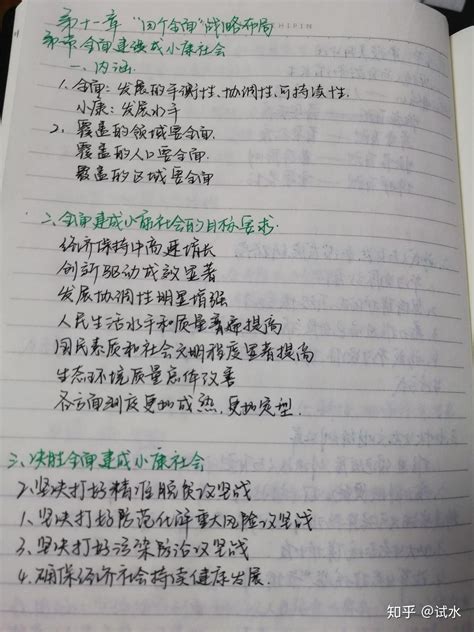 第十一章 "四个全面"战略布局
第一节 全面建成小康社会
一、内涵
1. 全面:发展的平衡性、协调性、可持续性.
小康:发展水平
2. 覆盖的领域要全面
覆盖的人口要全面.
覆盖的区域要全面
二、全面建成小康社会的目标要求
经济保持中高速增长
创新驱动成效显著
发展协调性明显增强
人民生活水平和质量普遍提高
国民素质和社会文明程度显著提高
生态环境质量总体改善
各方面制度更加成熟、更加定型.
三、决胜全面建成小康社会
2. 坚决打好精准脱贫攻坚战
1. 坚决打好防范化解重大风险攻坚战
3. 坚决打好污染防治攻坚战
4. 确保经济社会持续健康发展.
知乎 @试水